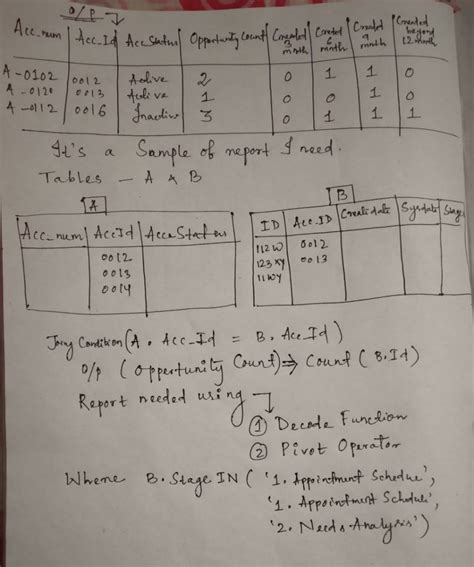 O/P
Acc_num Acc_Id Acc Status Opportunity Count Created 3 month Created 6 month Created 9 month Created beyond 12 month
A-0102 0012 Active 2 0 1 1 0
A-0120 0013 Active 1 0 0 1 0
A-0112 0016 Inactive 3 0 1 1 1
It's a Sample of report I need.
Tables - A & B
A
Acc_num AccId Acc Status
0012
0013
0014
B
ID Acc_ID Createdate Sysdate Stage
112W 0012
123XY 0013
11WY
Joing Condition (A. Acc_Id = B. Acc_Id)
O/P (Oppertunity Count) ⇒ Count (B.Id)
Report needed using
① Decode Function
② Pivot Operator
Where B.Stage IN ('1. Appointment Schedue',
'1. Appointment Schedule',
'2. Needs Analysis')